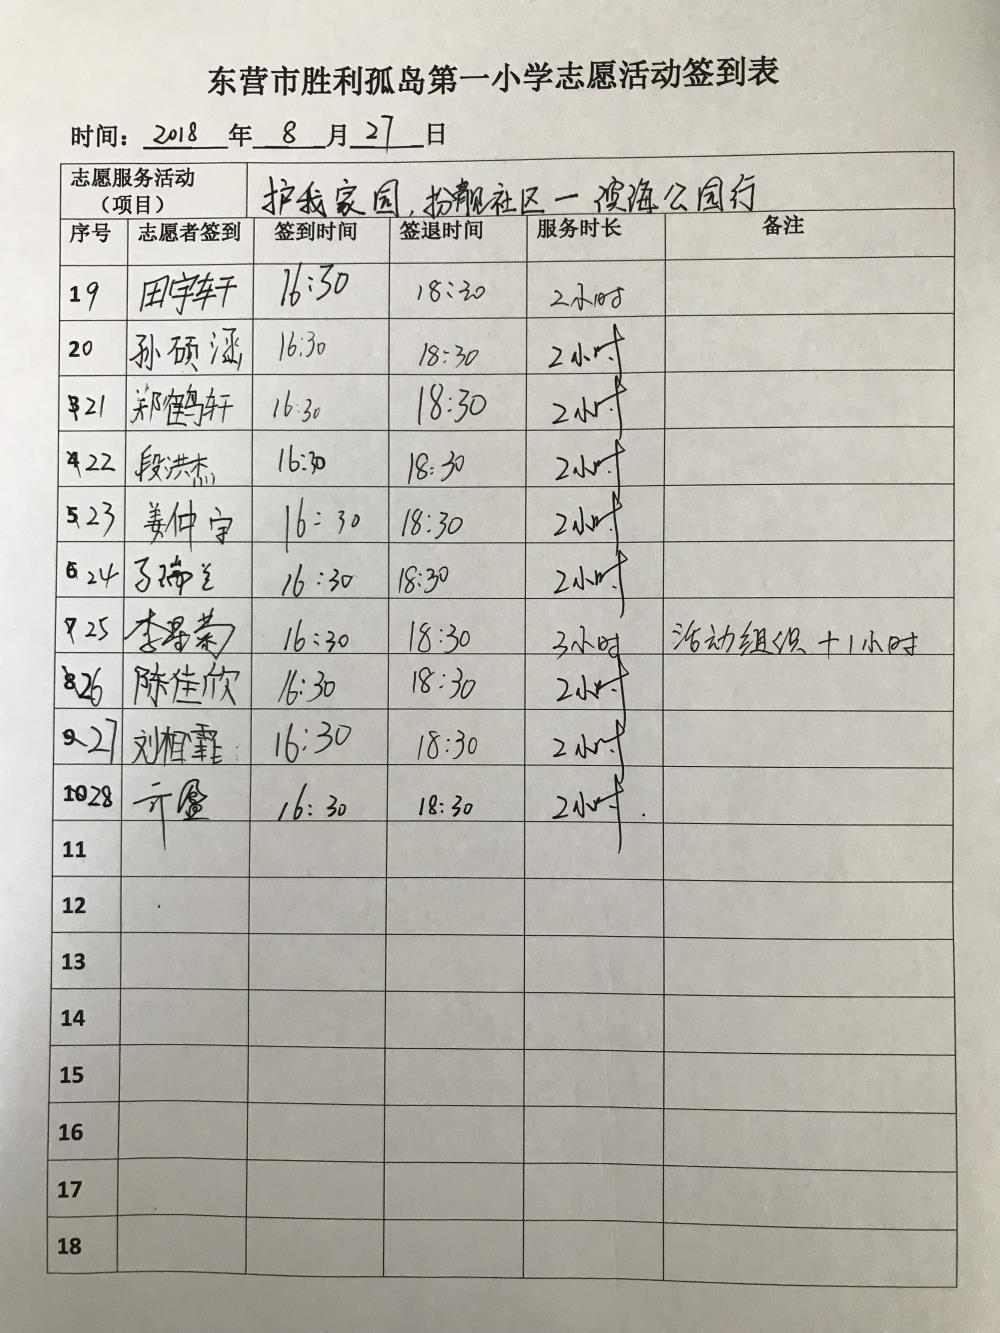 东营市胜利孤岛第一小学志愿活动签到表
时间：2018 年 8 月 27 日
志愿服务活动（项目） 护我家园，扮靓社区一滨海公园行
序号 志愿者签到 签到时间 签退时间 服务时长 备注
19 田宇轩 16:30 18:30 2小时
20 孙硕涵 16:30 18:30 2小时
21 郑鹤轩 16:30 18:30 2小时
22 段洪杰 16:30 18:30 2小时
23 姜仲宇 16:30 18:30 2小时
24 16:30 18:30 2小时
25 李 16:30 18:30 3小时 活动组织+1小时
26 陈佳欣 16:30 18:30 2小时
27 刘相霏 16:30 18:30 2小时
28 16:30 18:30 2小时.
11
12
13
14
15
16
17
18